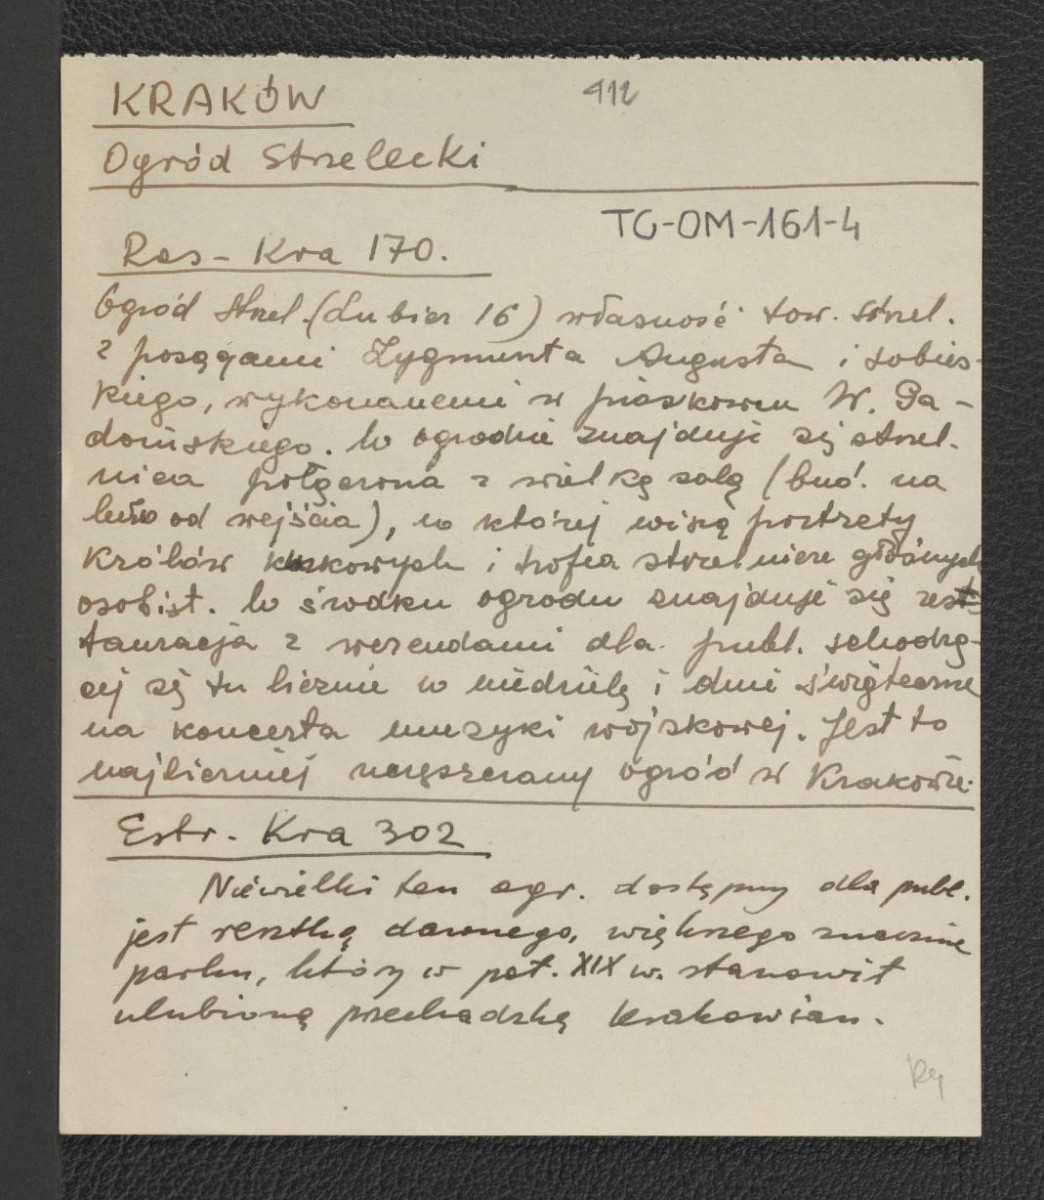 KRAKÓW
912
Ogród Strzelecki
TG-OM-161-4
Ros - Kra 170.
Ogród Strzel. (Lubicz 16) własność tow. strzel.
z posągami Zygmunta Augusta i Sobies-
kiego, wykonanemi w piaskowcu W. Ga-
domskiego. W ogrodzie znajduje się strzel-
nica połączona z wielką salą (bud. na
lewo od wejścia), w której wiszą portrety
królów kurkowych i trofea strzelnicze głównych
osobist. W środku ogrodu znajduje się res
tauracja z werendami dla publ. schodzą-
cej się tu licznie w niedzielę i dnie świąteczne
na koncerta muzyki wojskowej. Jest to
najliczniej uczęszczany ogród w Krakowie.
Estr. Kra 302
Niewielki ten ogr. dostępny dla publ.
jest resztką dawnego, większego znacznie
parku, który w poł. XIX w. stanowił
ulubioną przechadzkę Krakowian.